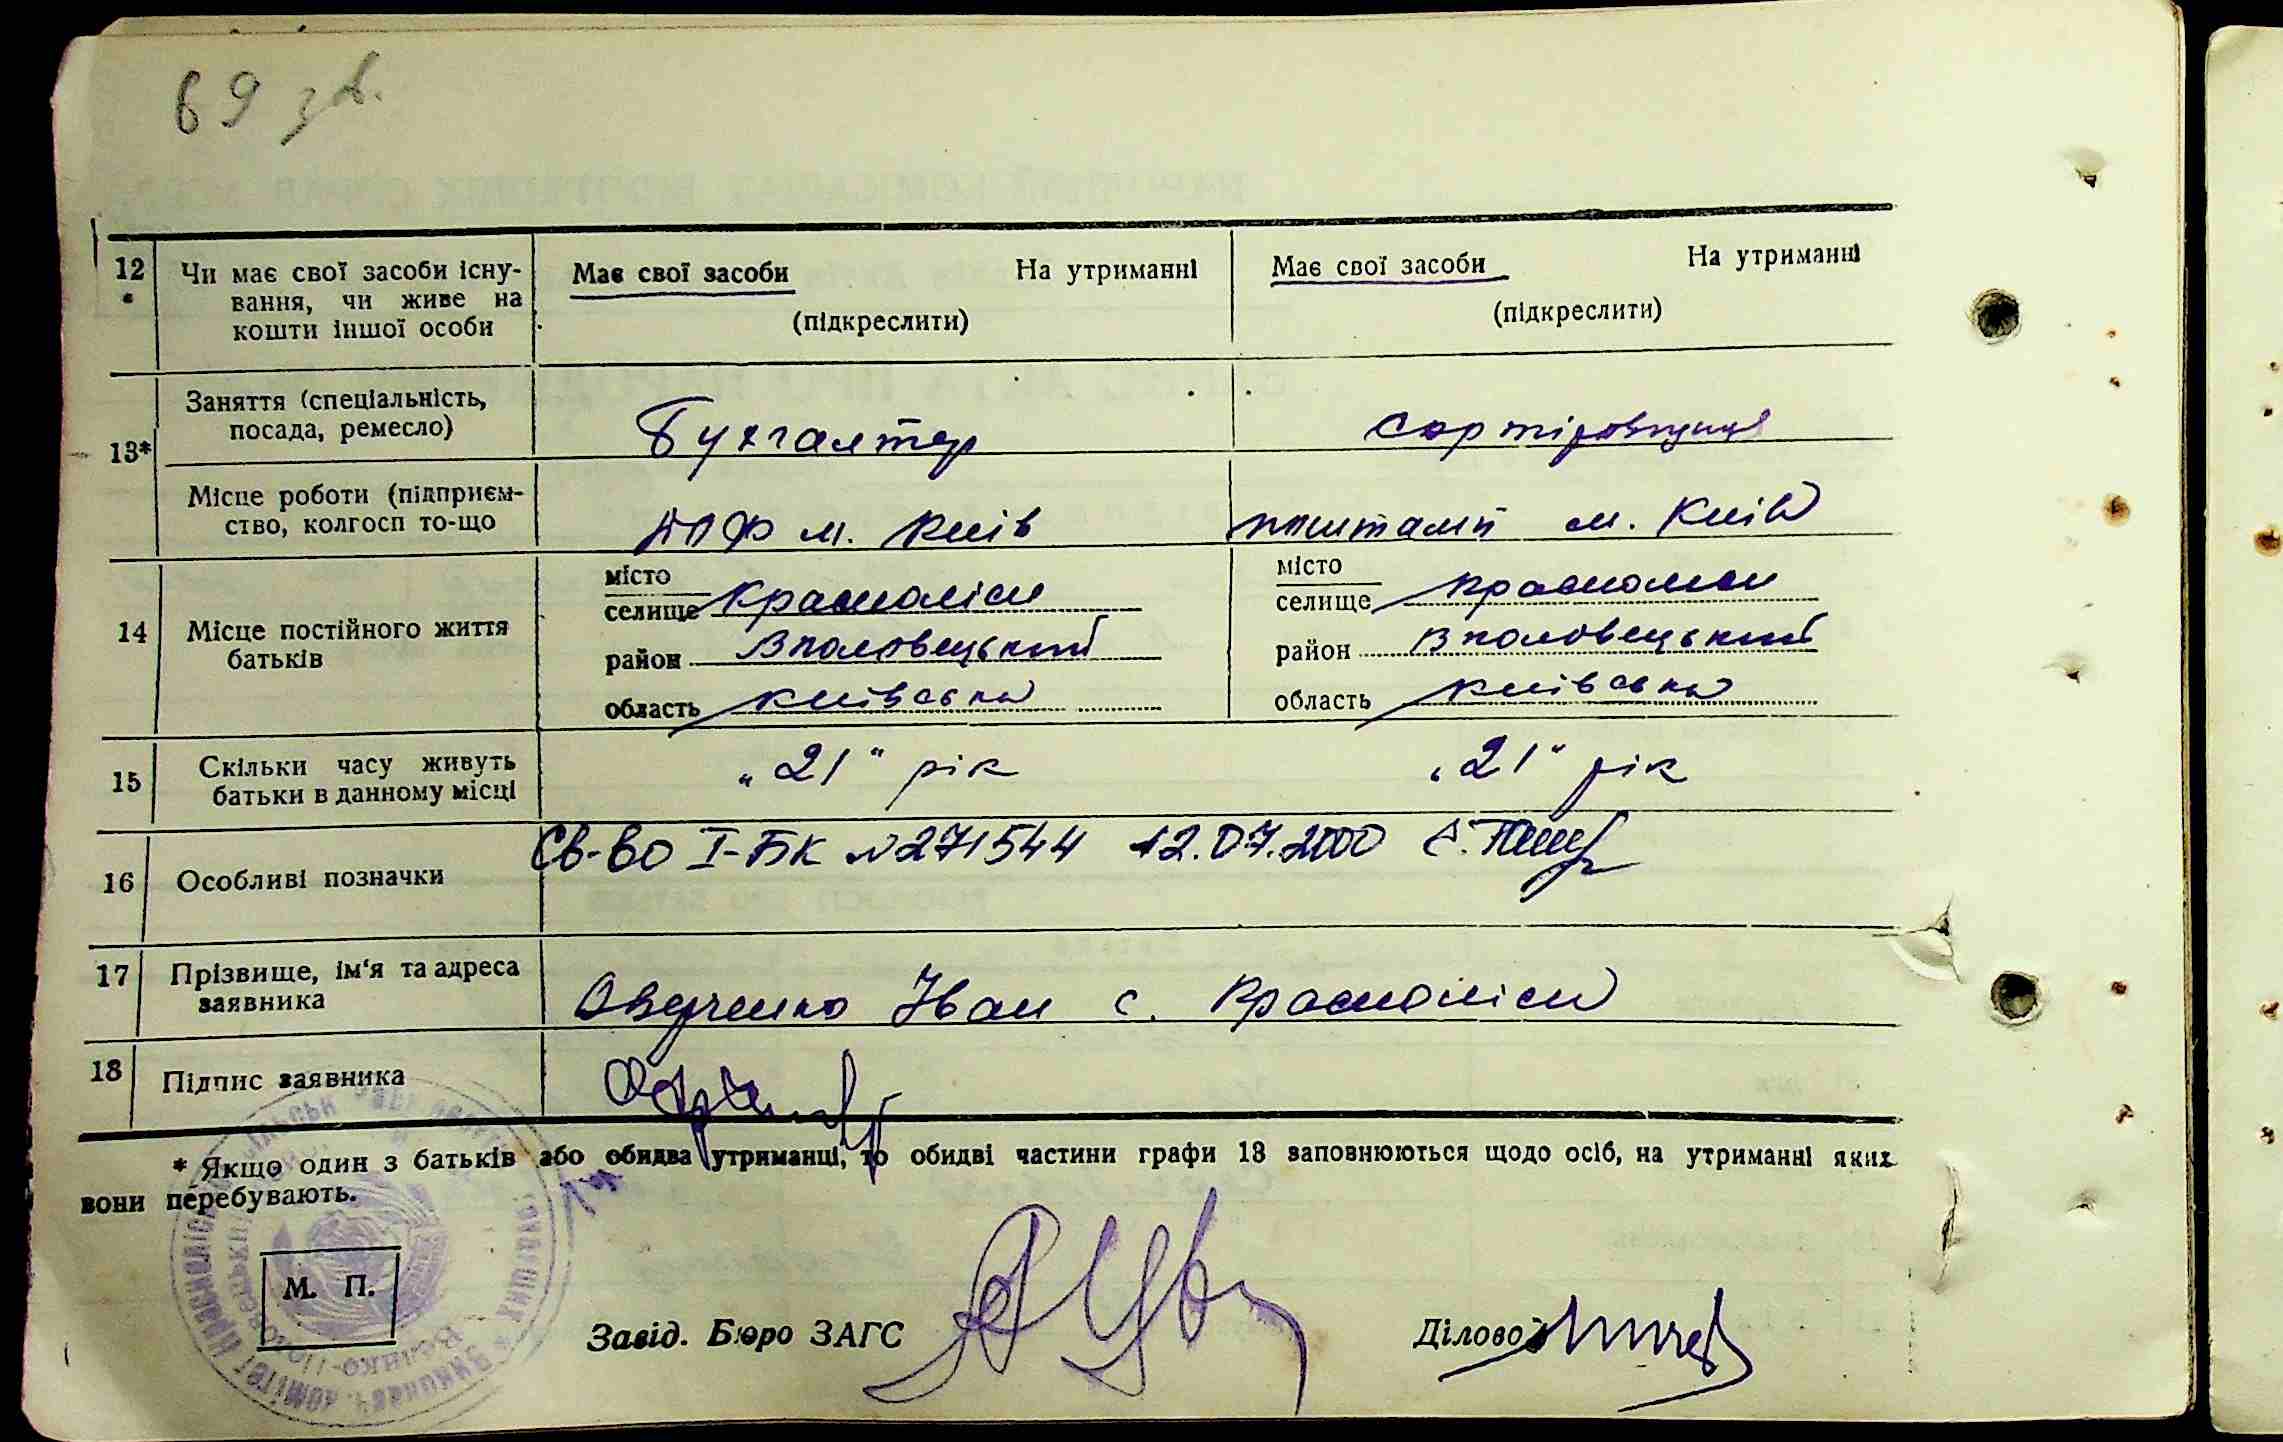 69 зв.
12 * Чи має свої засоби існування, чи живе на кошти іншої особи
Має свої засоби На утриманні
(підкреслити)
Має свої засоби На утриманні
(підкреслити)
13*
Заняття (спеціальність,
посада, ремесло)
Бухгалтер
сортіровщиця
Місце роботи (підприєм-
ство, колгосп то-що
м. Київ
поштамп м. Київ
14 Місце постійного життя
батьків
місто
селище Красноліси
район В половецький
область київська
місто
селище Красноліси
район В половецький
область київська
15 Скільки часу живуть
батьки в данному місці
„21“ рік
„21“ рік
16 Особливі позначки
Св-во І-БК №271544 12.07.2000
17 Прізвище, ім'я та адреса
заявника
Оверченко Іван с. Красноліси
18 Підпис заявника
* Якщо один з батьків або обидва утриманці, то обидві частини графи 13 заповнюються щодо осіб, на утриманні яких
вони перебувають.
М. П.
Завід. Бюро ЗАГС
Діловод